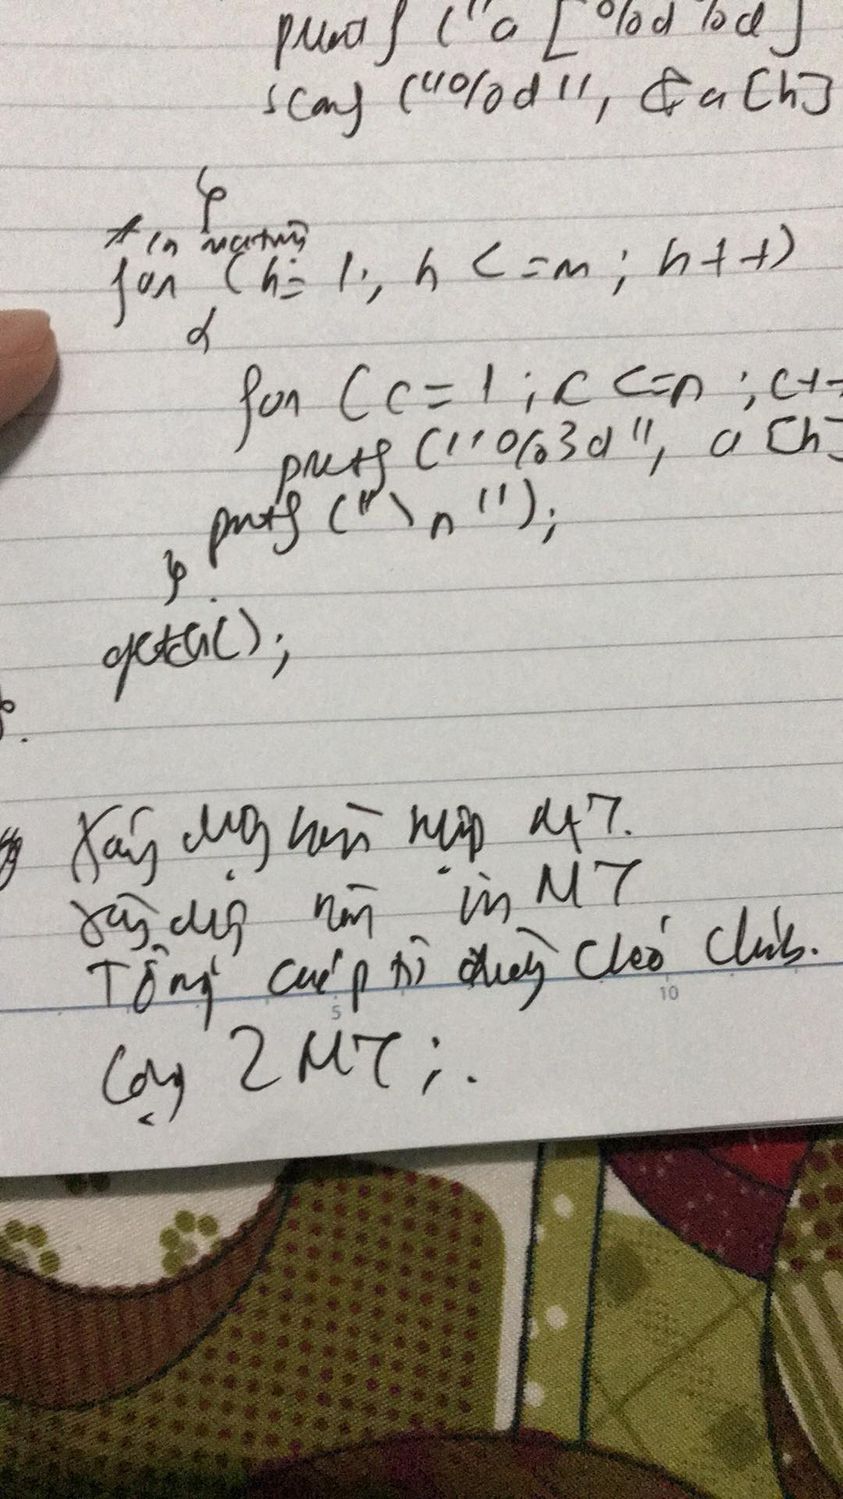 printf ("a [%d%d]
scanf ("%d", &a[h]
}
* in matrận
for (h= 1; h <=m; h++)
{
for (c=1; c <=n; c++
printf ("%3d", a[h]
printf ("\n");
}
getch();
}.
Xây dựng hàm nhập MT.
Xây dựng hàm in MT
Tổng các ptử đường chéo chính.
Cộng 2 MT;.
5 10